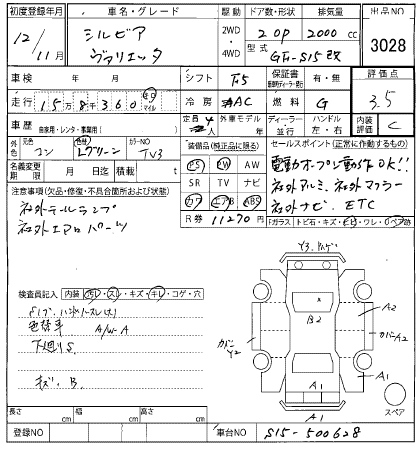 初度登録年月 車名・グレード 駆動 ドア数・形状 排気量 出品NO
12/11月 シルビア ヴァリエッタ 2WD・4WD 2 OP 2000 cc 3028
型式 GF-S15改
車検 年 月 シフト F5 保証書 有・無 評価点
走行 15万8千360 km マイル 冷房 AAC 燃料 G 3.5
車歴 自家用・レンタ・事業用( ) 定員 4人 外車モデル 年 ディーラー・並行 ハンドル 左・右 内装評価 C
元色 コン 色替 Lグリーン カラーNO TV3
名義変更期限 月 日迄 積載 t
装備品(純正品に限る)
PS PW AW
SR TV ナビ
カワ エアB ABS
R券 11270円
セールスポイント(正常に作動するもの)
電動オープン動作OK!!
社外アルミ、社外マフラー
社外ナビ、ETC
Fガラス トビ石・キズ・ヒビ・ワレ・リペア跡
注意事項(欠品・修復・不具合箇所および状態)
社外テールランプ
社外エアロパーツ
検査員記入 内装 ヨゴレ・スレ・キズ・キレ・コゲ・穴
色替車 A/W A
下廻りS
キズ、B
B2
A2
カバンA2
カバンY2
A1
A1
スペア
長さ cm 幅 cm 高さ cm
登録NO 車台NO S15-500628